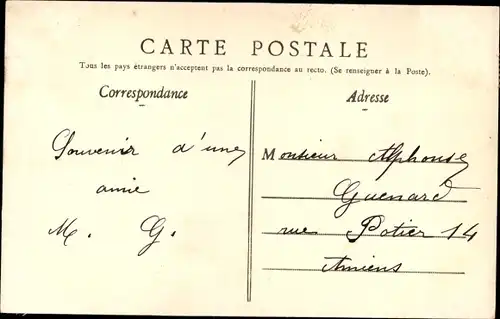 CARTE POSTALE
Tous les pays étrangers n'acceptent pas la correspondance au recto. (Se renseigner à la Poste).
Correspondance
Souvenir d'une
amie
M. G.
Adresse
Monsieur Alphonse
Guenard
rue Potier 14
Amiens